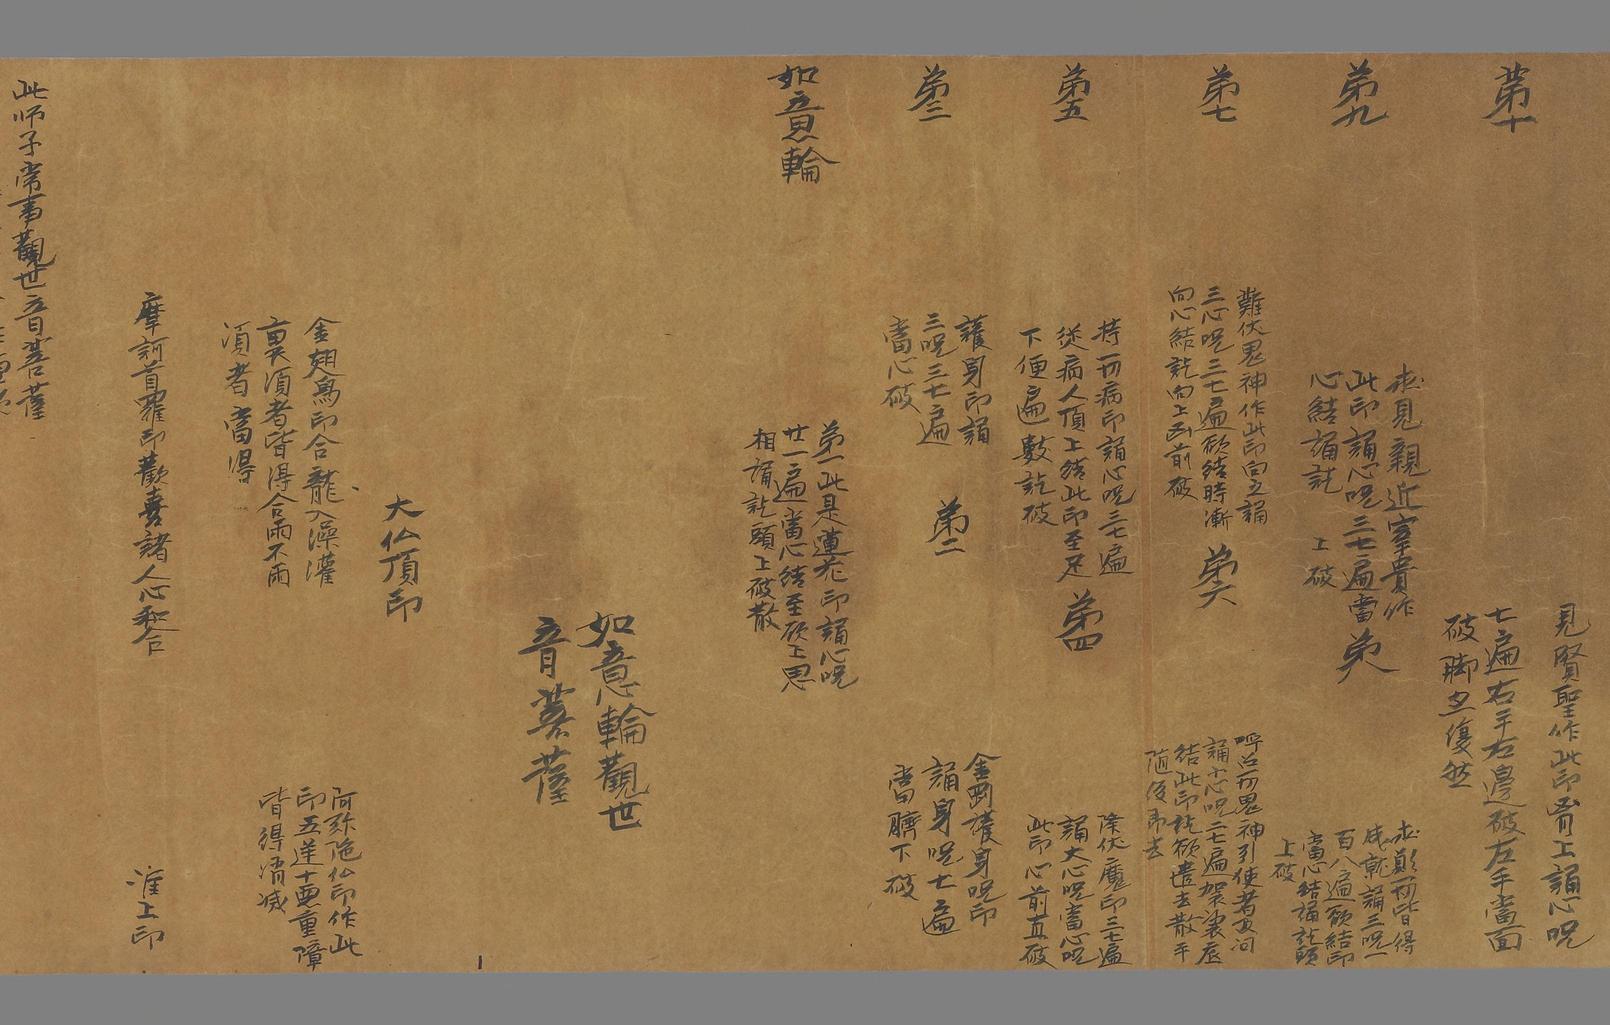 第十
見賢聖作此印胷上誦心呪
七遍右手右邊破左手當面
破脚立復然
第九
求見親近宰貴作
此印誦心呪三七遍當
心結誦訖 上破
第八
求願所皆得
成就誦三呪一
百八遍欲結印
當心結誦訖頭
上破
第七
難伏鬼神作此印向立誦
三心呪三七遍欲結時漸
向心結訖向上面前破
第六
呼召所鬼神引使者
誦小心呪二七遍袈裟底
結此印訖欲遣去散手
隨後即去
第五
持一切病印誦心呪三七遍
從病人頂上結此印至足
下便遍數訖破
第四
降伏魔印三七遍
誦大心呪當心呪
此印心前直破
第三
護身印誦
三呪三七遍
當心破
第二
金剛護身呪印
誦身呪七遍
當臍下破
如意輪
第一此是蓮花印誦心呪
廿一遍當心結至欲上思
相誦訖頭上破散
如意輪觀世
音菩薩
大仏頂印
金翅鳥印合龍入澡灌
裏須者皆得合雨不雨
須者當得
阿弥陁仏印作此
印五逆十惡重障
皆得消滅
摩訶首羅印歡喜諸人心和合
准上印
此师子常事觀世音菩薩